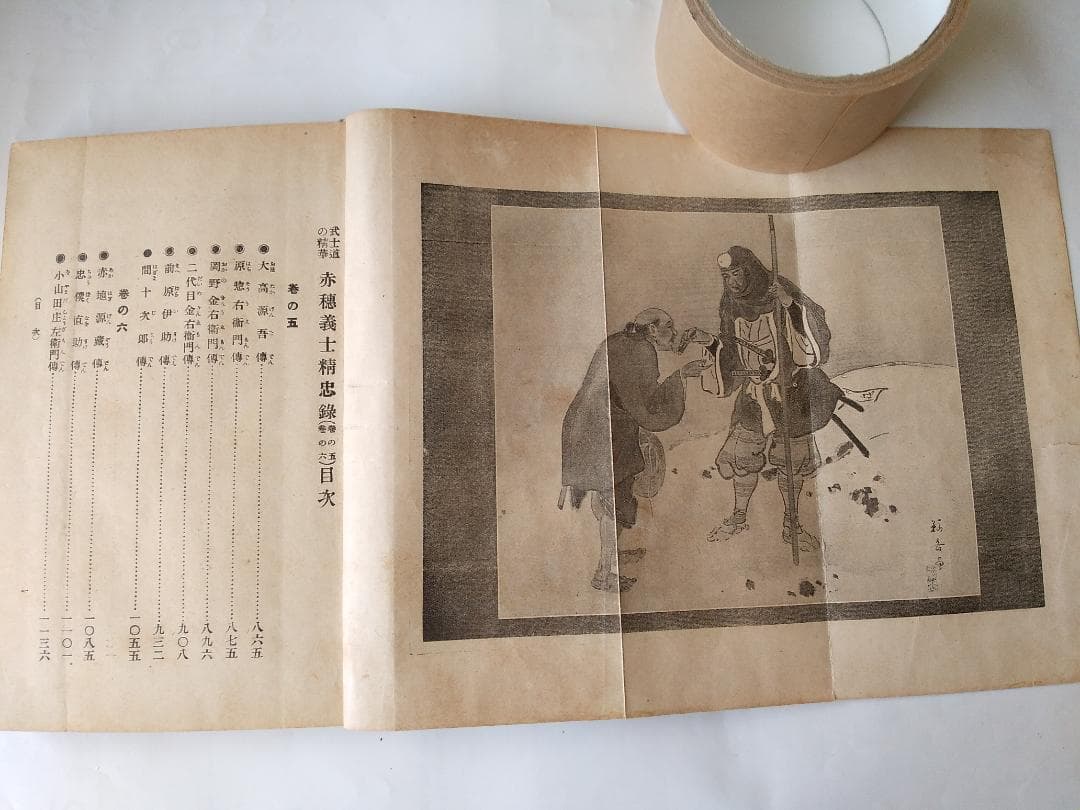 武士道の精華 赤穗義士精忠錄(卷の五卷の六)目次
卷の五
◉大高源吾傳……八六五
◉原惣右衞門傳……八七五
◉岡野金右衞門傳……八九六
◉二代目金右衞門傳……九〇八
◉前原伊助傳……九三二
◉間十次郎傳……一〇五五
卷の六
◉赤埴源藏傳……一〇八五
◉忠僕直助傳……一一〇一
◉小山田庄左衞門傳……一一三六
(目次)